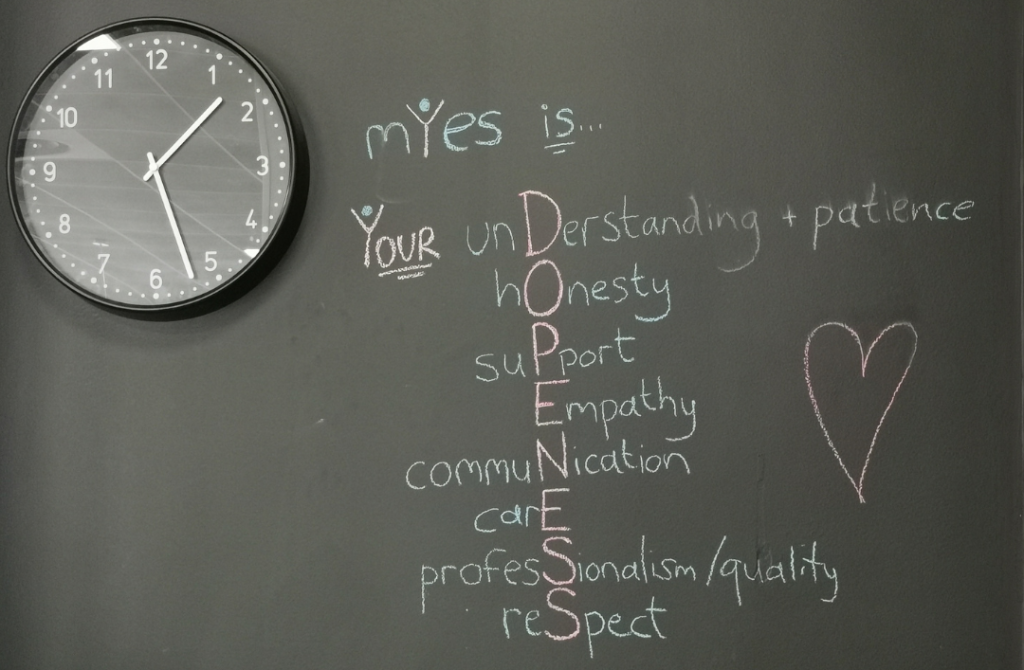 12
11 1
10 2
9 3
8 4
7 5
6
mYes is...
YOUR unDerstanding + patience
hOnesty
suPport
Empathy
commuNication
carE
profesSionalism/quality
reSpect